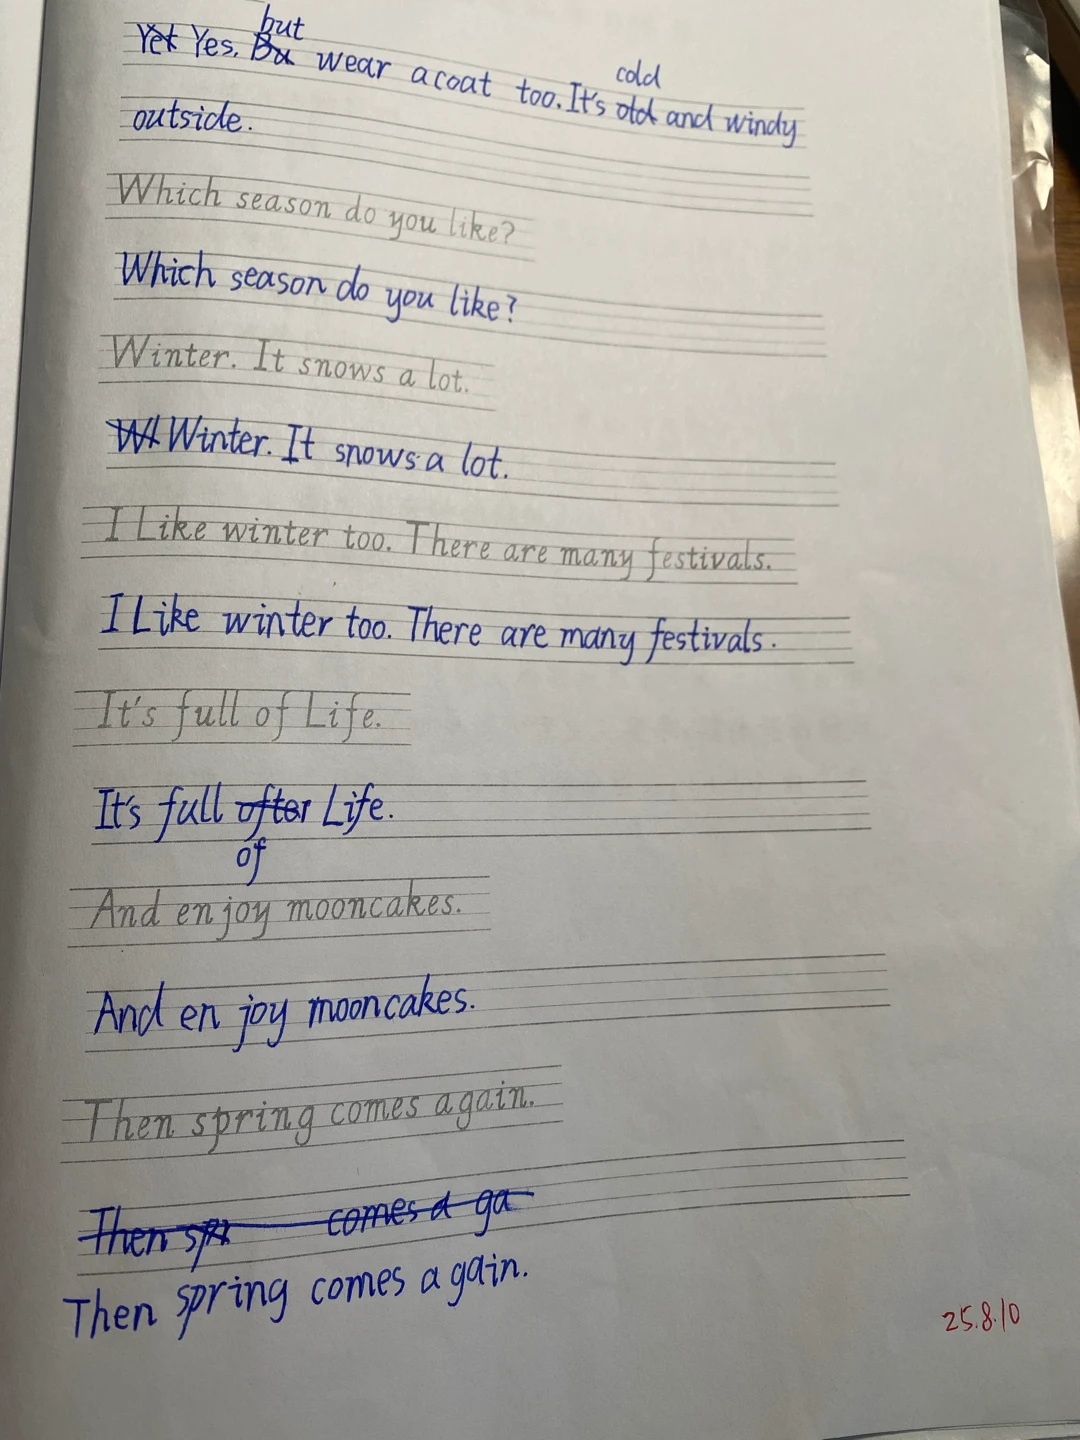 but
Yet Yes. Bu wear a coat too. It's old and windy
cold
outside.
Which season do you like?
Which season do you like?
Winter. It snows a lot.
Wt Winter. It snows a lot.
I Like winter too. There are many festivals.
I Like winter too. There are many festivals.
It's full of Life.
It's full ofter Life.
of
And enjoy mooncakes.
And en joy mooncakes.
Then spring comes again.
Then spr comes a ga
Then spring comes again.
25.8.10